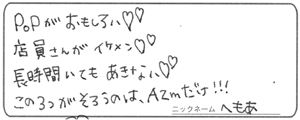 PoPがおもしろい♡♡
店員さんがイケメン♡♡
長時間いてもあきない♡♡
この3つがそろうのは、A2mだけ!!!
ニックネーム へもあ